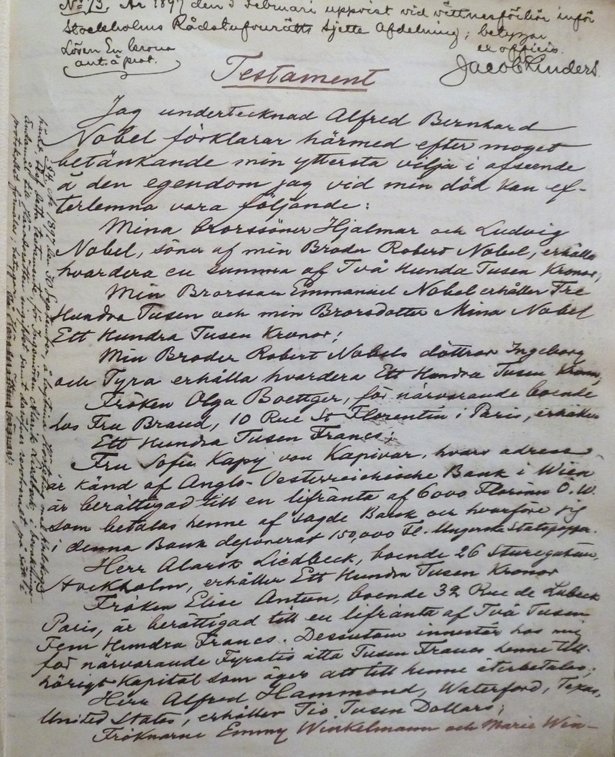 No 73. År 1897 den 5 Februari uppvist vid vittnesförhör inför
Stockholms Rådstufvurätts Sjette Afdelning; betygar
Lösen En krona
ex officio.
ant. å prot.
Jacob Linders.
Testament
Jag undertecknad Alfred Bernhard
Nobel förklarar härmed efter moget
betänkande min yttersta vilja i afseende
å den egendom jag vid min död kan ef-
terlemna vara följande:
Mina Brorssöner Hjalmar och Ludvig
Nobel, söner af min Broder Robert Nobel, erhålla
hvardera en summa af Två Hundra Tusen Kronor;
Min Brorsson Emmanuel Nobel erhåller Tre
Hundra Tusen och min Brorsdotter Mina Nobel
Ett Hundra Tusen Kronor;
Min Broder Robert Nobels döttrar Ingeborg
och Tyra erhålla hvardera Ett Hundra Tusen Kronor;
Fröken Olga Boettger, för närvarande boende
hos Fru Brand, 10 Rue St Florentin i Paris, erhåller
Ett Hundra Tusen Francs;
Fru Sofie Kapy von Kapivar, hvars adress
är känd af Anglo-Oesterreichische Bank i Wien
är berättigad till en lifränta af 6000 Florins Ö.W.
som betalas henne af sagde Bank och hvarföre jag
i denna Bank deponerat 150,000 Fl. i Ungerska Statspapper.
Herr Alarik Liedbeck, boende 26 Sturegatan,
Stockholm, erhåller Ett Hundra Tusen Kronor
Fröken Elise Antun, boende 32 Rue de Lubeck
Paris, är berättigad till en lifränta af Två Tusen
Fem Hundra Francs. Dessutom innestår hos mig
för närvarande Fyratio åtta Tusen Francs henne till-
hörigt Kapital som äger att till henne återbetalas;
Herr Alfred Hammond, Waterford, Texas,
United States, erhåller Tio Tusen Dollars;
Fröknarne Emmy Winkelmann och Marie Win-